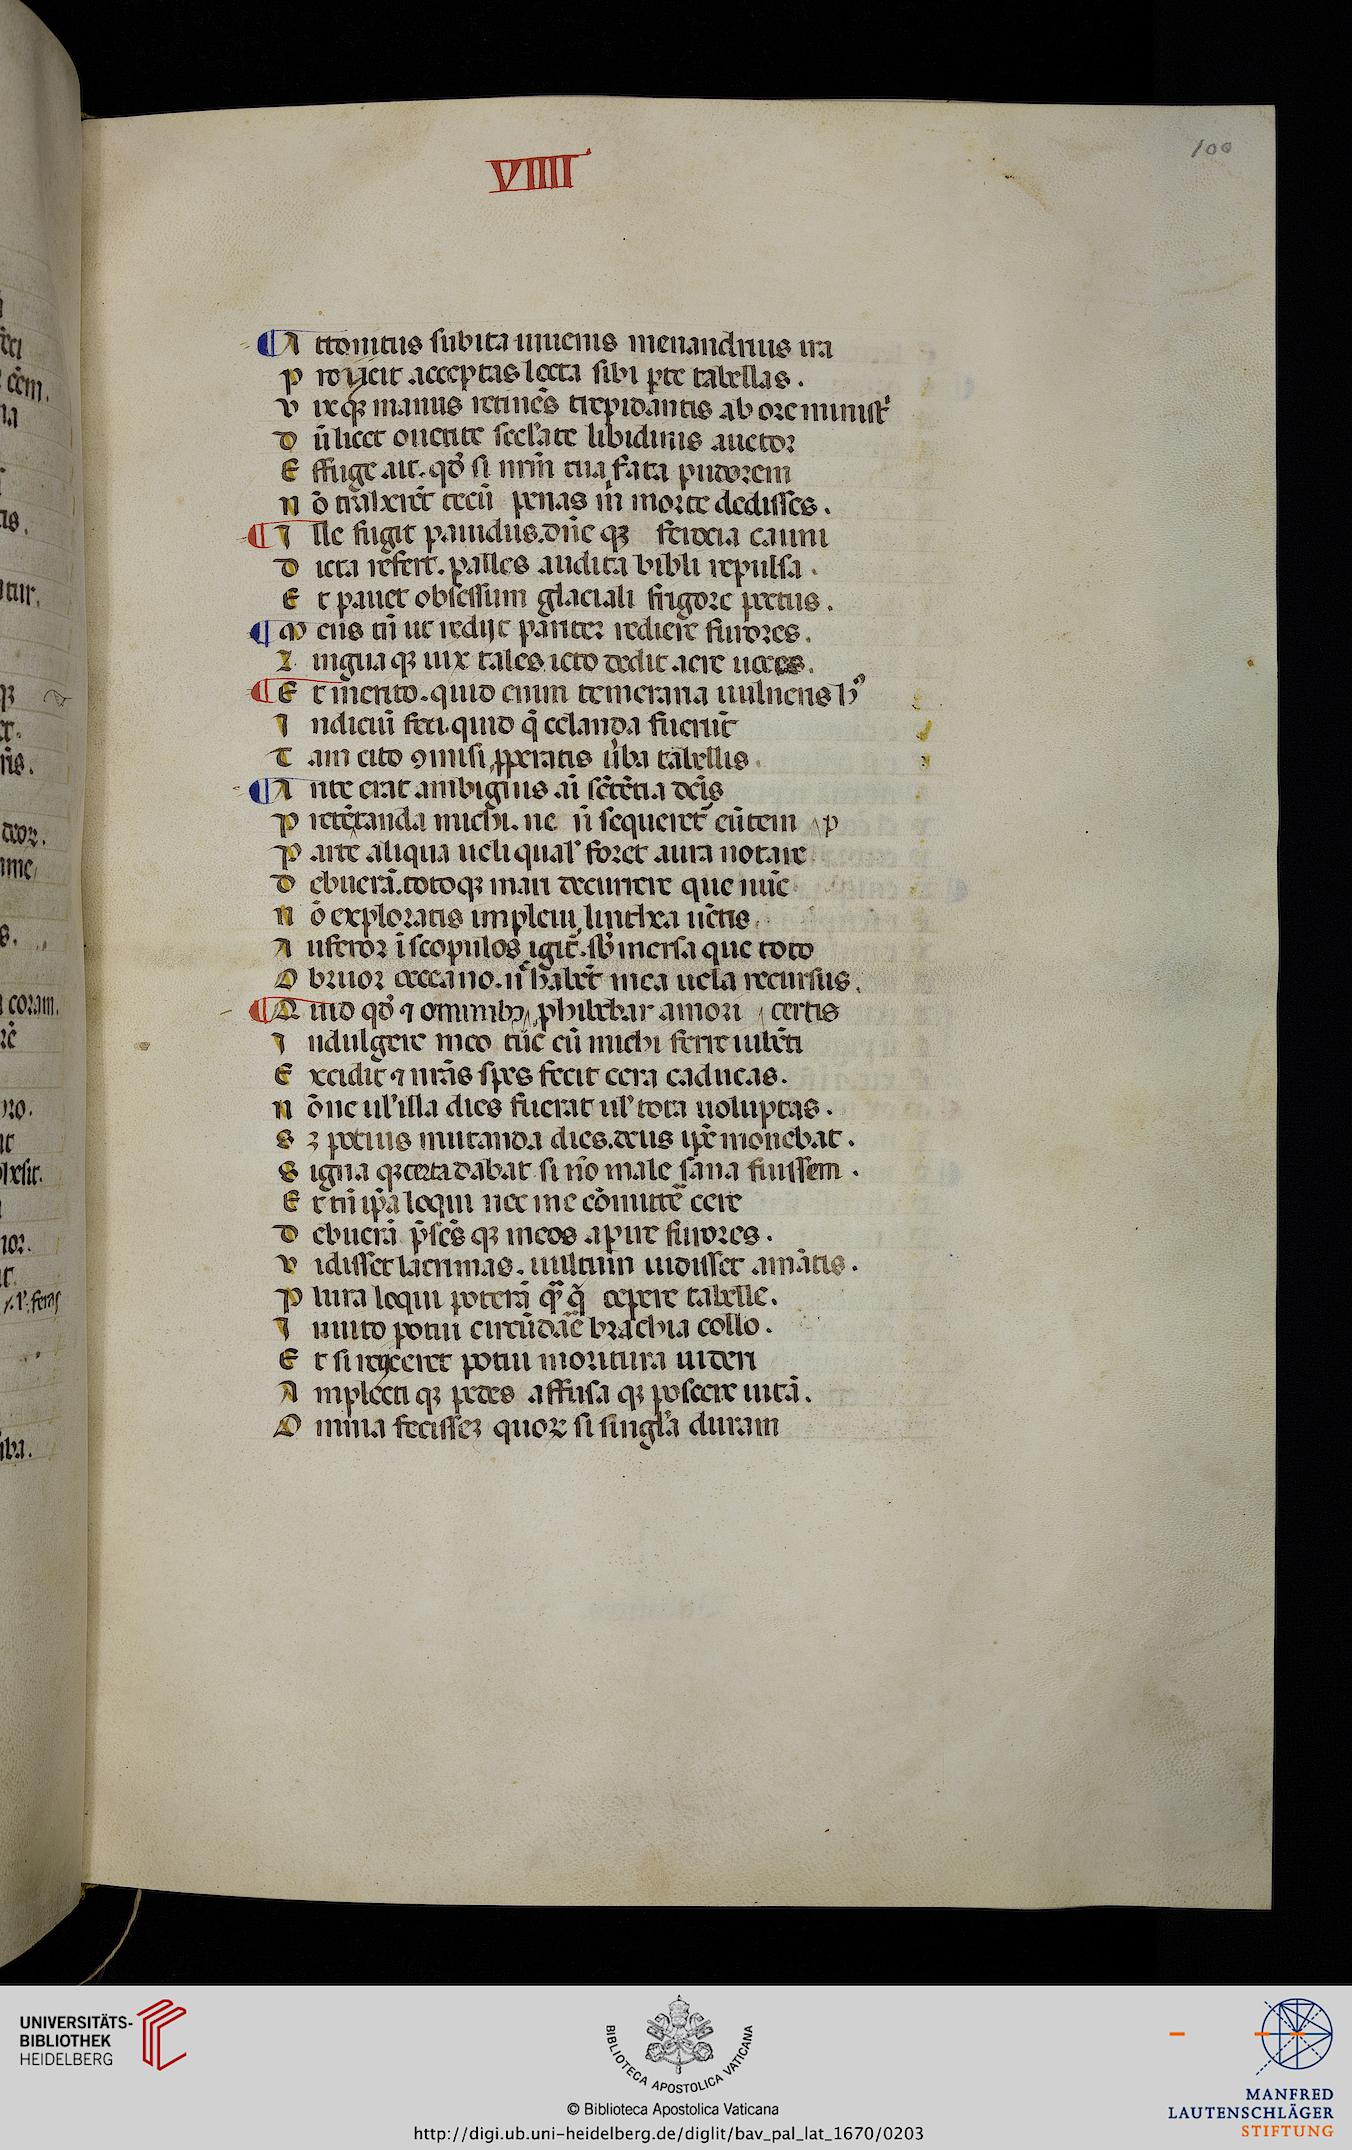 VIIII
100
A ttonitus subita iuuenis menandrius ira
P roijcit acceptas lecta sibi p̱te tabellas.
V ixqꝫ manus retinēs trepidantis ab ore minist͛
D ū licet o uetite scel̕ate libidinis auctor
E ffuge ait. qđ si nr̄m tua fata pudorem
N ō trah̕erēt tecū penas m̄ morte dedisses.
¶ I lle fugit pauidus. dn̄e qꝫ ferocia cauni
D icta refert. palles audita bibli repulsa.
E t pauet obsessum glaciali frigore pectus.
¶ M ens tn̄ ut redijt pariter rediere furores.
L ingua qꝫ uix tales icto dedit aere uoces.
¶ E t merito. quid enim temeraria uulneris h̕9
I ndiciū feci. quid q̄ celanda fuerūt
T am cito ꝯmisi ꝓperatis ūba tabellis.
¶ A nte erat ambiguis aī sētētia dc̄is
P retētanda michi. ne ñ sequeret̄ eūtem p
P arte aliqua ueli qual̕ foret aura notare
D ebuerā. totoqꝫ mari decurrere que nūc
N ō exploratis impleui linthea uētis.
A uferor ī scopulos igit̄. sb̕mersa que toto
O bruor occeano. ñ habēt mea uela recursus.
¶ Q uid qđ ⁊ ominibꝫ phibebar amori certis
I ndulgere meo tūc cū michi ferre iubēti
E xcidit ⁊ nr̄as spes fecit cera caducas.
N ōne ul̕ illa dies fuerat ul̕ tota uoluptas.
S ꝫ potius mutanda dies. deus ip̄e monebat.
S igna qꝫ certa dabat si nō male sana fuissem.
E t tn̄ ip̄a loqui nec me cōmittē cere
D ebuerā p̄sēs qꝫ meos apire furores.
V idisset lacrimas. uultum uidisset amātis.
P lura loqui poterā q̄ q̄ cepere tabelle.
I nuito potui circūdāe brachia collo.
E t si reijceret potui moritura uideri
A mplecti qꝫ pedes affusa qꝫ poscere uitā.
O mnia fecissē quoꝝ si singl̕a duram
UNIVERSITÄTS-
BIBLIOTHEK
HEIDELBERG
BIBLIOTECA APOSTOLICA VATICANA
© Biblioteca Apostolica Vaticana
http://digi.ub.uni-heidelberg.de/diglit/bav_pal_lat_1670/0203
MANFRED
LAUTENSCHLÄGER
STIFTUNG